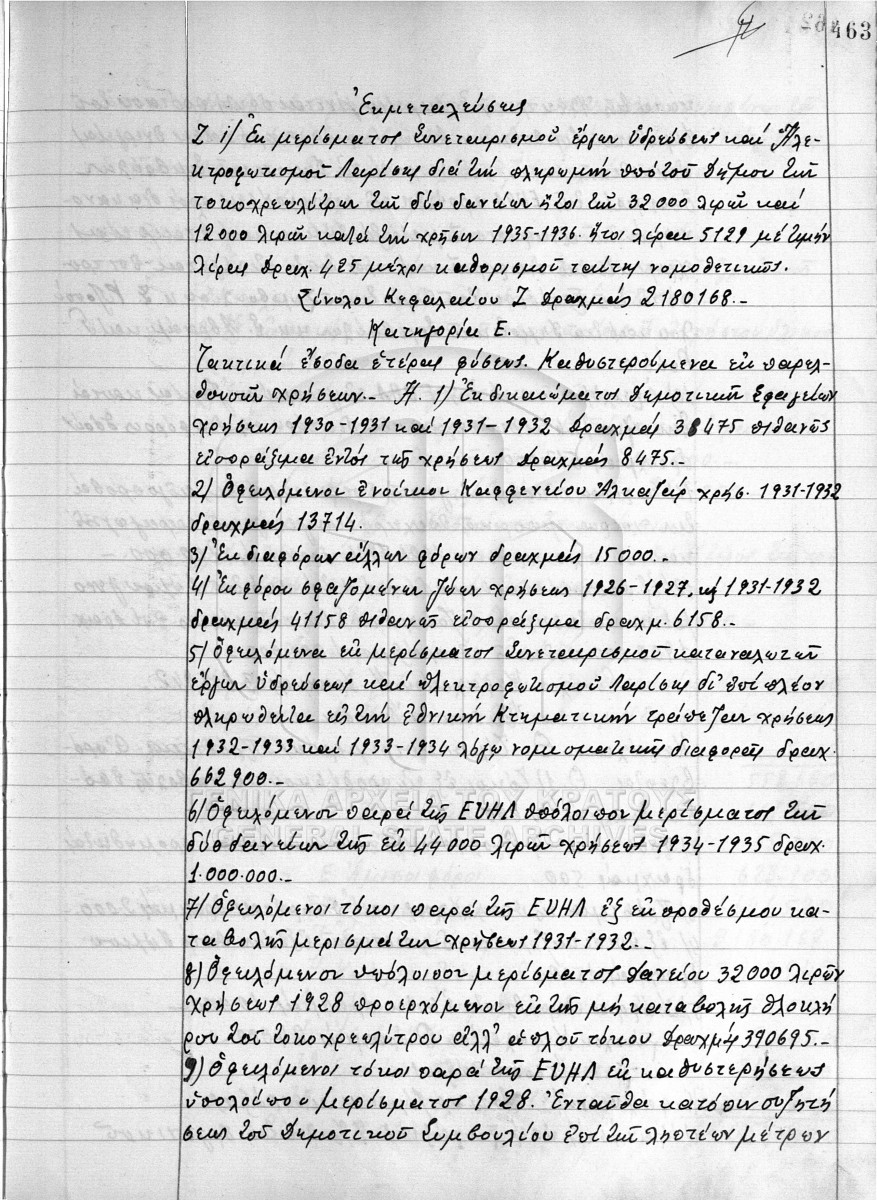 463
Ἐκμεταλεύσεις
Ζ 1) Ἐκ μερίσματος Συνεταιρισμοῦ ἔργων ὑδρεύσεως καί Ἠλε-
κτροφωτισμοῦ Λαρίσης διά τήν πληρωμήν ὑπό τοῦ Δήμου τῶν
τοκοχρεωλύτρων τῶν δύο δανείων ἤτοι τῶν 32000 λιρῶν καί
12000 λιρῶν κατά τήν χρῆσιν 1935-1936. ἤτοι λίραι 5129 μέ τιμήν
λίρας Δραχ. 425 μέχρι καθορισμοῦ ταύτης νομοθετικῶς.
Σύνολον Κεφαλαίου Ζ Δραχμάς 2180168.-
Κατηγορία Ε.
Τακτικά ἔσοδα ἑτέρας φύσεως. Καθυστερούμενα ἐκ παρελ-
θουσῶν χρήσεων.- Α. 1) Ἐκ δικαιώματος Δημοτικῶν Σφαγείων
χρήσεως 1930-1931 καί 1931-1932 Δραχμάς 38475 πιθανῶς
εἰσπράξιμα ἐντός τῆς χρήσεως Δραχμάς 8475.-
2) Ὀφειλόμενοι ἐνοίκιοι Καφφενείου Ἀλκαζάρ χρήσ. 1931-1932
δραχμάς 13714.
3) Ἐκ διαφόρων ἄλλων φόρων δραχμάς 15000.-
4) Ἐκ φόρου σφαζομένων ζώων χρήσεως 1926-1927. κ 1931-1932
δραχμάς 41158 πιθανῶς εἰσπράξιμα δραχμ. 6158.-
5) Ὀφειλόμενα ἐκ μερίσματος Συνεταιρισμοῦ καταναλωτῶν
ἔργων ὑδρεύσεως καί ἠλεκτροφωτισμοῦ Λαρίσης δι' ἐπί πλέον
πληρωθεῖσα εἰς τήν Ἐθνικήν Κτηματικήν τράπεζαν χρήσεως
1932-1933 καί 1933-1934 λόγω νομισματικῆς διαφορᾶς δραχ.
662900.-
ΓΕΝΙΚΑ ΑΡΧΕΙΑ ΤΟΥ ΚΡΑΤΟΥΣ
6) Ὀφειλόμενον παρά τῆς ΕΥΗΛ ὑπόλοιπον μερίσματος τῶν
GENERAL STATE ARCHIVES
δύο δανείων τῆς ἐκ 44000 λιρῶν χρήσεως 1934-1935 δραχ.
1.000.000.-
7) Ὀφειλόμενοι τόκοι παρά τῆς ΕΥΗΛ ἐξ ἐκπροθέσμου κα-
ταβολῆς μερισμάτων χρήσεως 1931-1932.-
8) Ὀφειλόμενον ὑπόλοιπον μερίσματος Δανείου 32000 λιρῶν
χρήσεως 1928 προερχόμενον ἐκ τῆς μή καταβολῆς ὁλοκλή
ρου τοῦ τοκοχρεωλύτρου ἀλλ' ἁπλοῦ τόκου Δραχμάς 390695.-
9) Ὀφειλόμενοι τόκοι παρά τῆς ΕΥΗΛ ἐκ καθυστερήσεως
ὑπολοίπου μερίσματος 1928. Ἐνταῦθα κατόπιν συζητή
σεως τοῦ Δημοτικοῦ Συμβουλίου ἐπί τῶν ληπτέων μέτρων